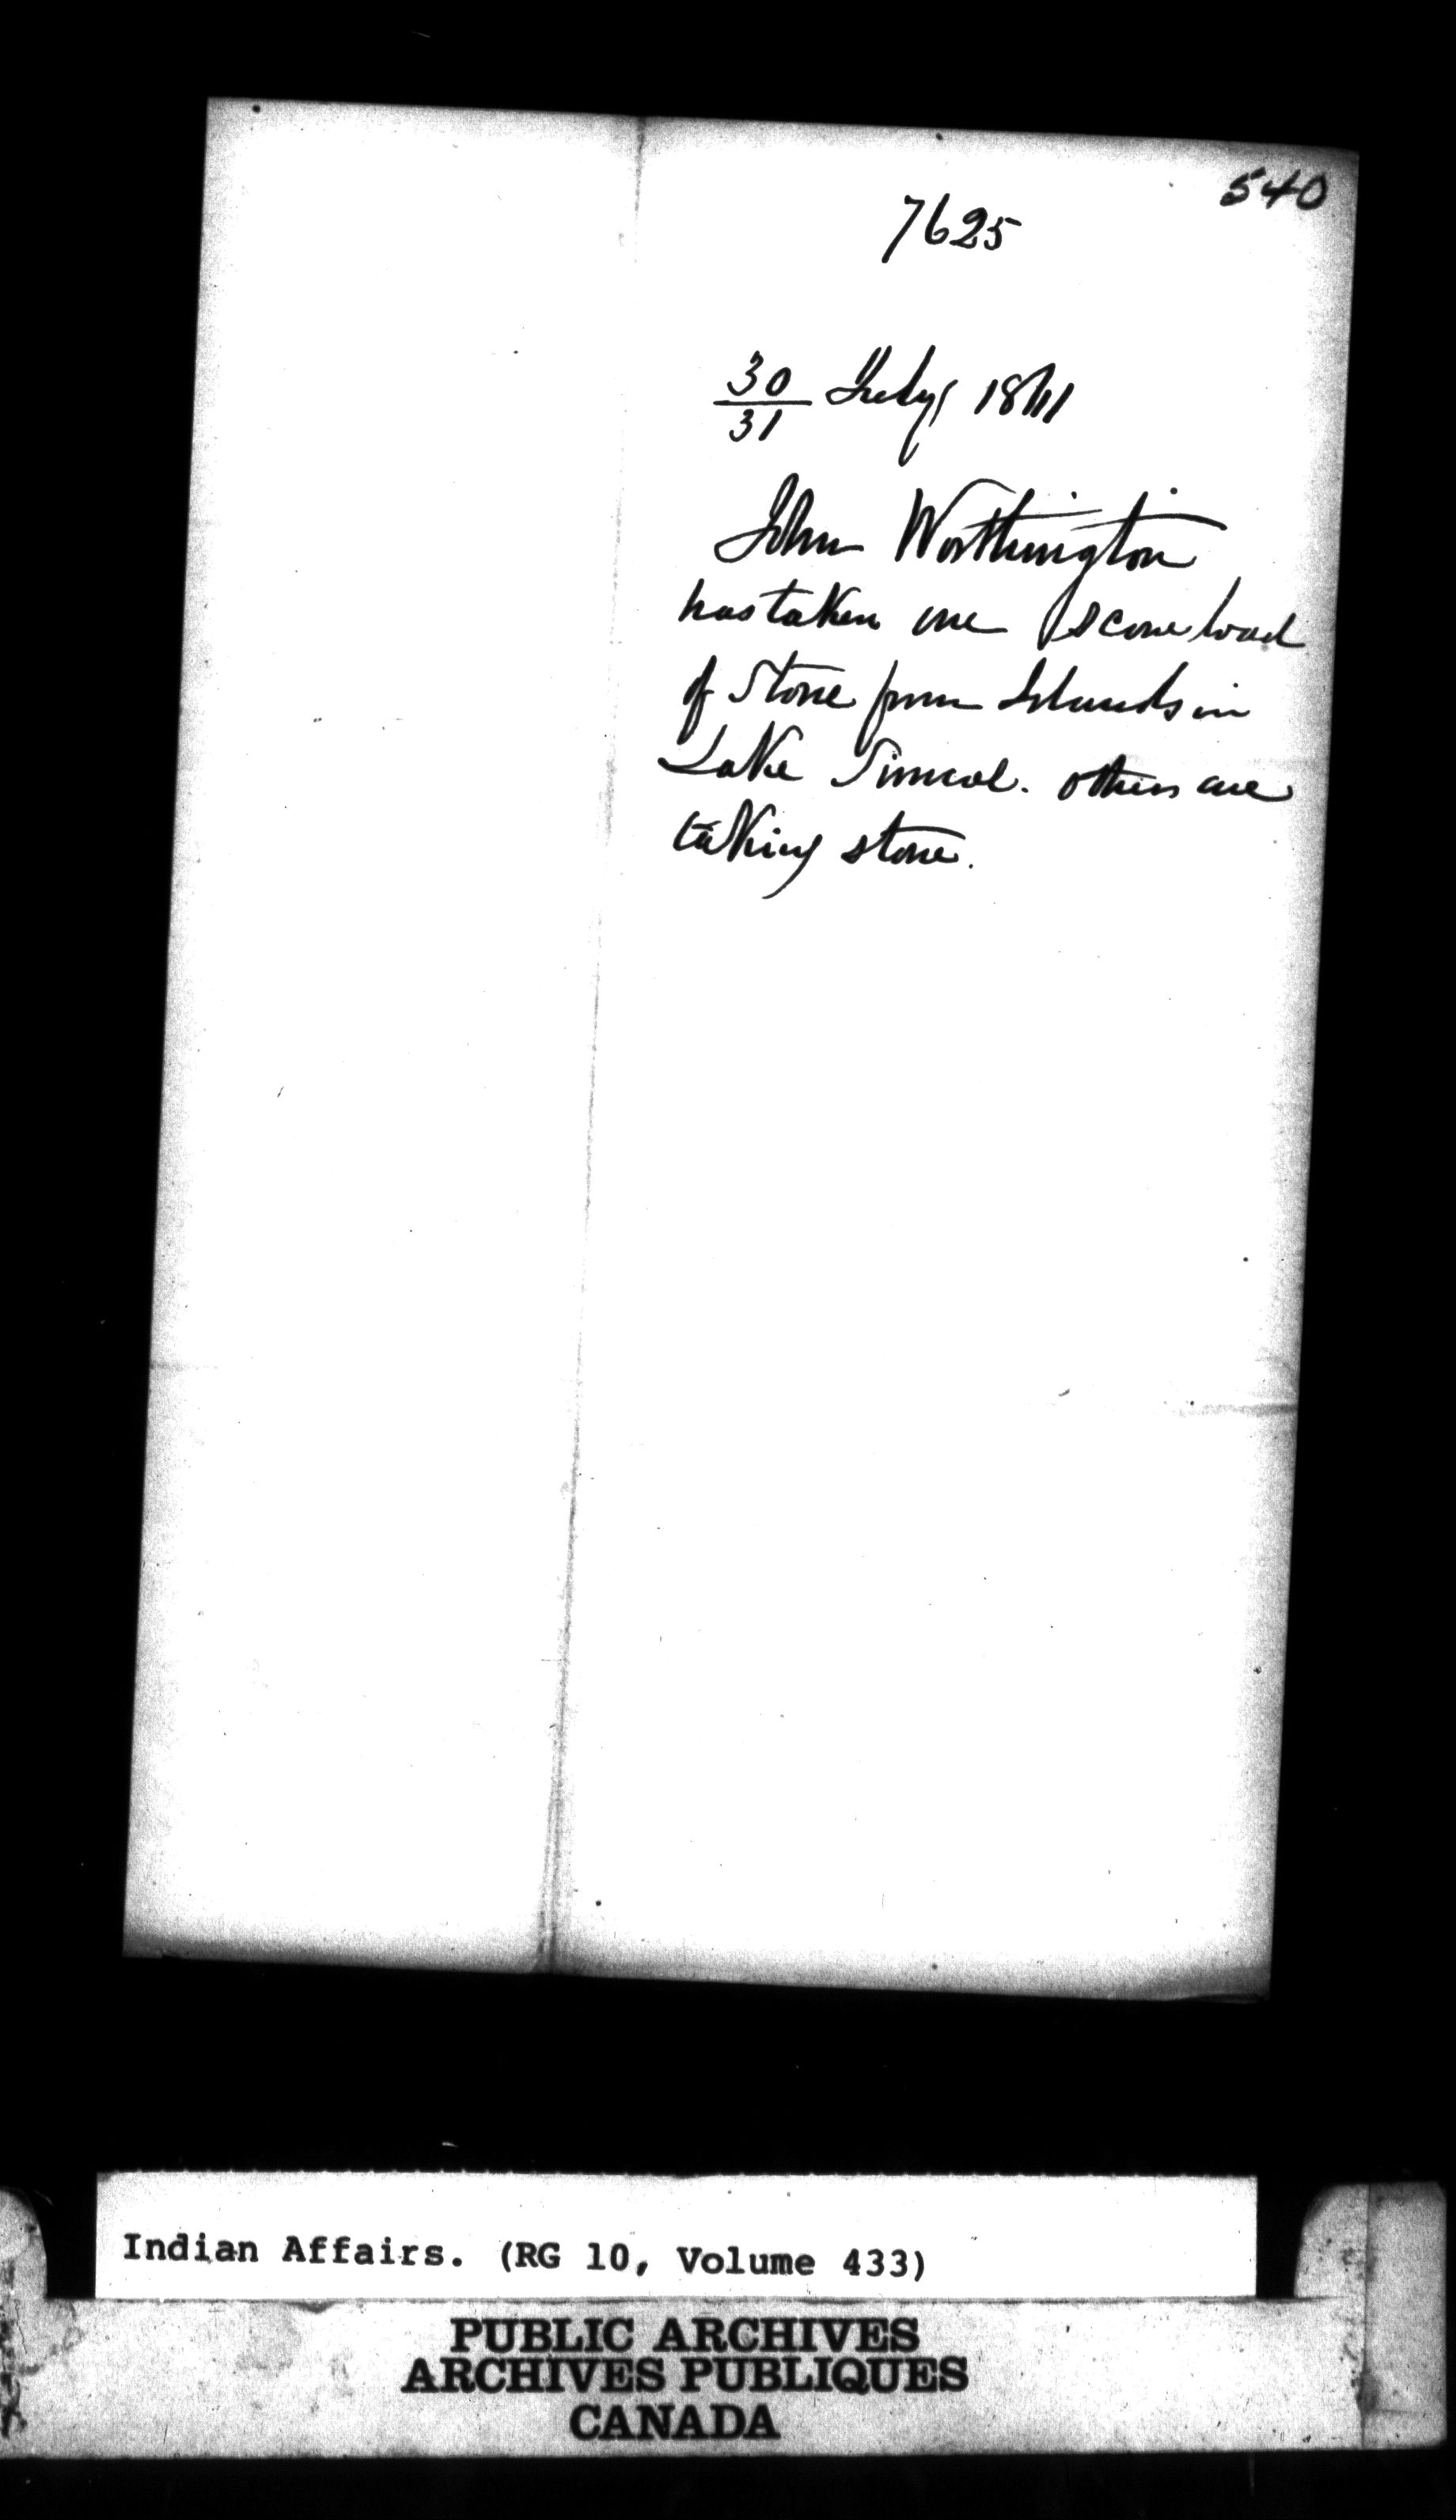 540
7625
30/31 July 1871
John Worthington
has taken one scow load
of Stone from Islands in
Lake Simcoe. others are
taking stone.
Indian Affairs. (RG 10, Volume 433)
PUBLIC ARCHIVES
ARCHIVES PUBLIQUES
CANADA